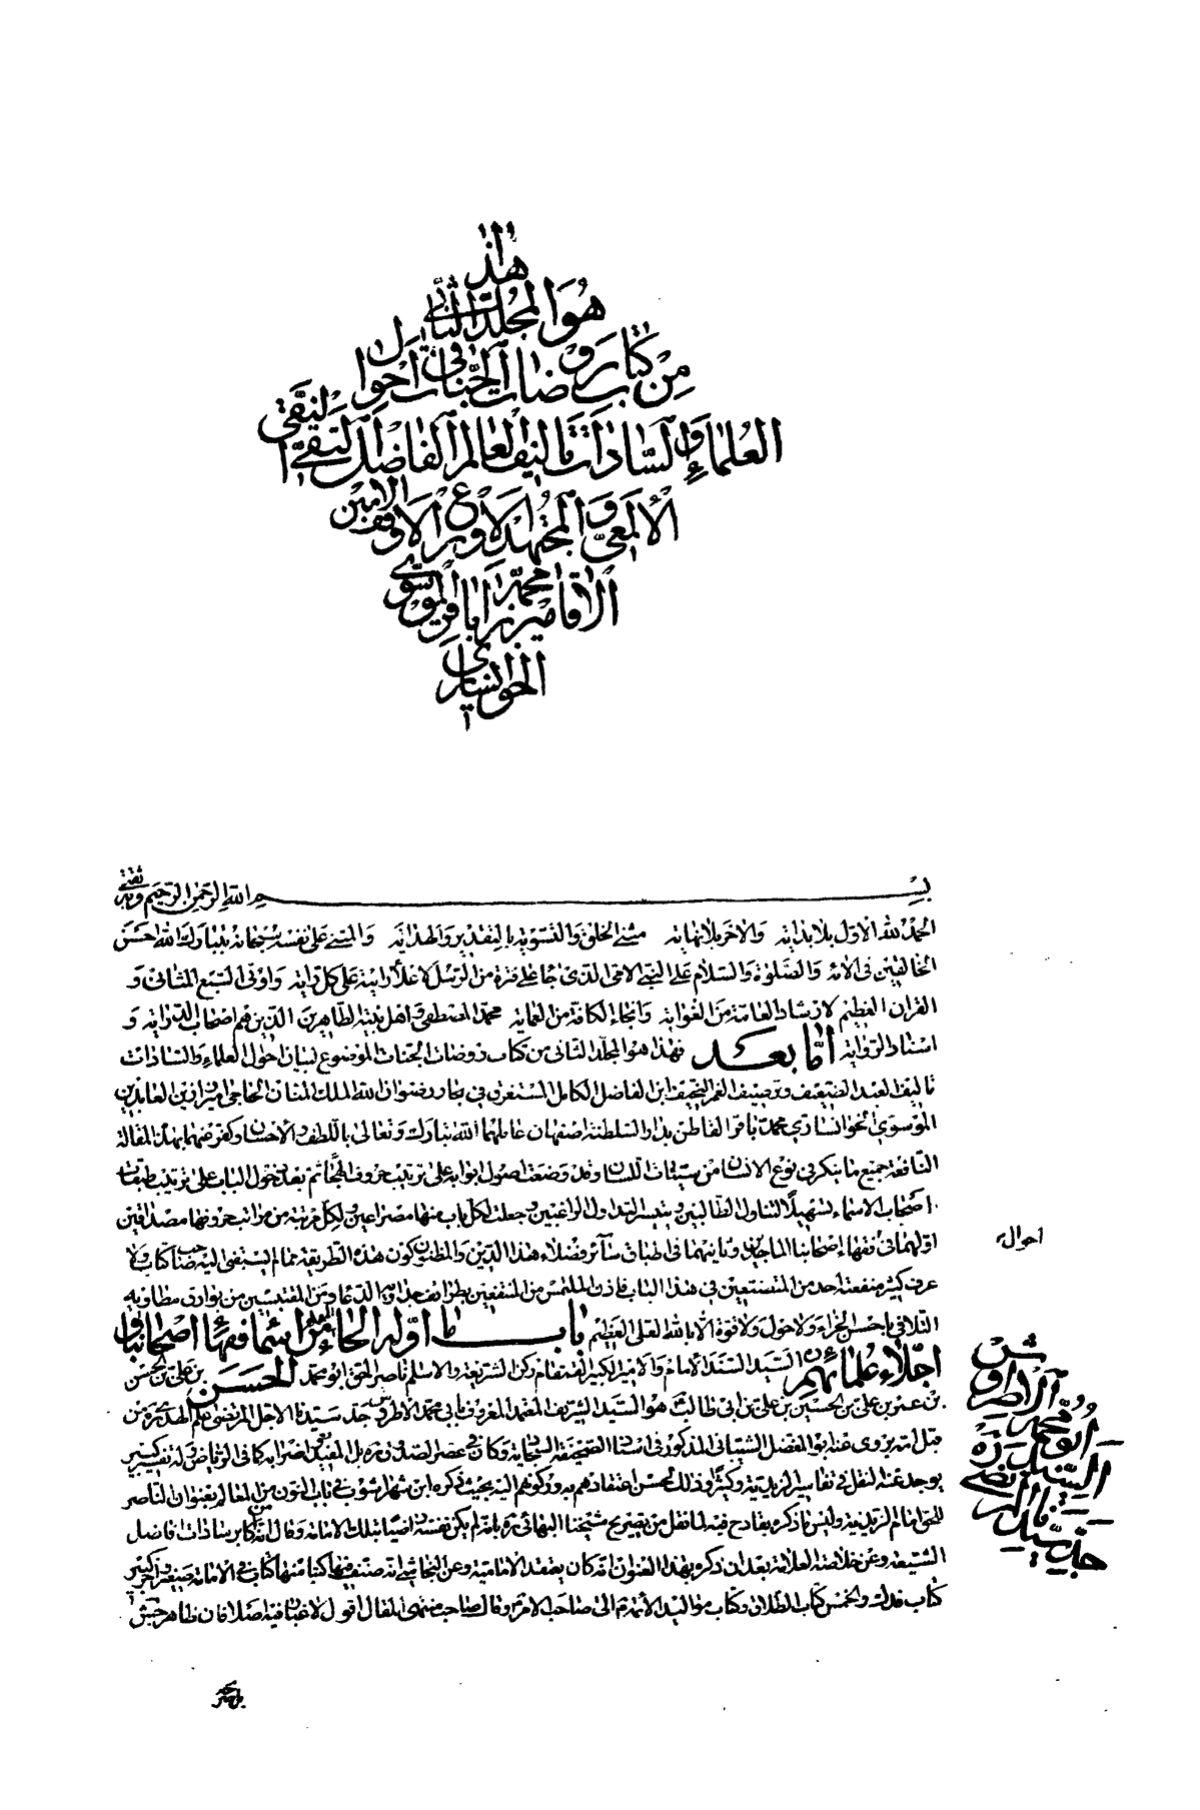 هذا
هو المجلد الثاني
من كتاب روضات الجنات في احوال
العلماء والسادات تاليف العالم الفاضل التقي النقي
الالمعي و المجتهد الاورع الافقه الامين
الاقا ميرزا محمد باقر الموسوي
الخوانساري
بسم الله الرحمن الرحيم وبه ثقتي
الحمد لله الاول بلا بداية والاخر بلا نهاية منشئ الخلق والتسوية بالتقدير والهداية والمثني على نفسه سبحانه بتبارك الله احسن
الخالقين في الآية والصلوة والسلام على النبي الامي الذي جاء على فترة من الرسل لاعلاء رايته على كل راية واوتي السبع المثاني و
القران العظيم لارشاد العامة من الغواية وانجاء الكافة من العماية محمد المصطفى واهل بيته الطاهرين الذين هم اصحاب الدراية و
اسناد الرواية اما بعد فهذا هو المجلد الثاني من كتاب روضات الجنات الموضوع لبيان احوال العلماء والسادات
تاليف العبد الضعيف وترصيف الغمر النحيف ابن الفاضل الكامل المستغرق في بحار رضوان الله الملك المنان الحاجي اميرزا زين العابدين
الموسوي الخوانساري محمد باقر القاطن بدار السلطنة اصفهان عاملهما الله تبارك وتعالى باللطف والاحسان وكفر عنهما بهذه المقالة
النافعة جميع ما ينكر في نوع الانسان من سيئات اللسان وقد وضعت اصول ابوابه على ترتيب حروف الهجاء ثم بعد دخول الباب على ترتيب طبقات
اصحاب الاسماء تسهيلا لتناول الطالبين وتيسيرا لتداول الراغبين وجعلت لكل باب منها مصراعين ولكل مرتبة من مراتب حروفها مصداقين
اولهما في فقهاء اصحابنا الماجدين وثانيهما في اطباق سائر فضلاء هذا الدين والمظنون كون هذه الطريقة مما لم يسبقني اليه صاحب كتاب ولا
عرف كثير منفعته احد من المتتبعين في هذا الباب فاذن الملتمس من المنتفعين بطرائف جداوله الدعاء ومن المقتبسين من بوارق مطاويه
التلافي باحسن الجزاء ولا حول ولا قوة الا بالله العلي العظيم باب ما اوله الحاء من اسماء فقهاء اصحابنا و
اجلاء علمائهم السيد السند الامام والامير الكبير القمقام ركن الشريعة والاسلام ناصر الحق ابو محمد الحسن بن علي بن الحسن
بن عمر بن علي بن الحسين بن علي بن ابي طالب هو السيد الشريف المعتمد المعروف بابي محمد الاطروش جد سيدنا الاجل المرتضى علم الهدى ره من
قبل امه يروي عنه ابو المفضل الشيباني المذكور في اسناد الصحيفة السجادية وكان في عصر الصدوق ره بل المفيد واضرابه كما في الرياض وله تفسير كبير
يوجد عنه النقل في تفاسير الزيدية كثيرا وذلك لحسن اعتقادهم به وركونهم اليه بحيث ذكره ابن شهر اشوب في باب النون من المعالم بعنوان الناصر
للحق امام الزيدية وليس ما ذكره بقادح فيه لما نقل من تصريح شيخنا البهائي ره بانه لم يكن نفسه راضيا بتلك الامامة وقال انه من اكابر سادات افاضل
الشيعة وعن خلاصة العلامة بعد ان ذكره بهذا العنوان انه كان يعتقد الامامية وعن النجاشي انه صنف فيها كتبا منها كتاب في الامامة صغير واخر كبير
كتاب فدك والخمس كتاب الطلاق وكتاب مواليد الائمة الى صاحب الامر وقال صاحب منتهى المقال اقول لا غبار فيه اصلا فان ظاهر جش
احواله
السيد ابو محمد الاطروش
جد سيدنا المرتضى ره